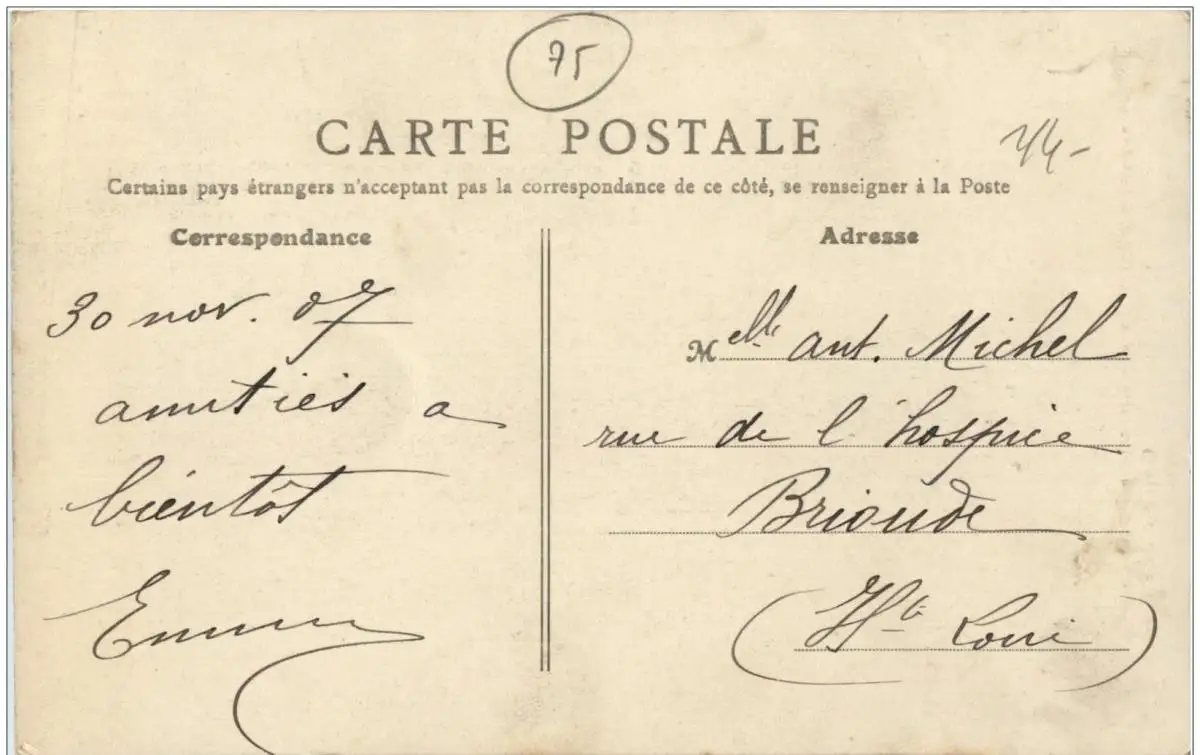 75
CARTE POSTALE
44-
Certains pays étrangers n'acceptant pas la correspondance de ce côté, se renseigner à la Poste
Correspondance
30 nov. 07
amitiés a
bientôt
Emma
Adresse
Melle ant. Michel
rue de l'hospice
Brioude
(Hte Loire)